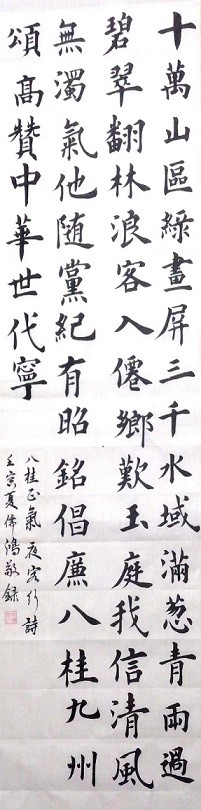 十萬山區綠畫屏三千水域滿葱青雨過
碧翠翻林浪客入僊鄉歎玉庭我信清風
無濁氣他随黨紀有昭銘倡廉八桂九州
頌高贊中華世代寧
八桂正氣 夜客行詩
壬寅夏偉鴻敬錄